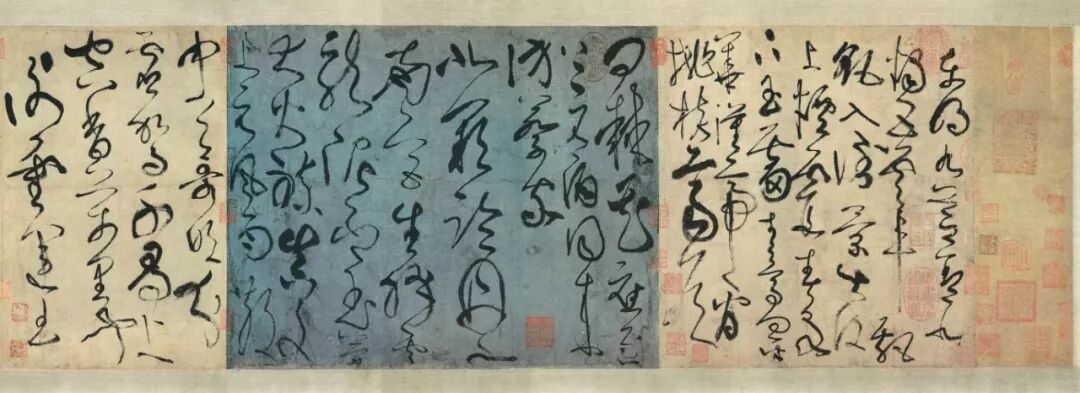 東明九芝蓋北
燭五雲車飄
飖入倒景出沒
上煙霞春泉
下玉霤青鳥向金
華漢帝看
桃核齊侯
問棘花應逐
上元酒同來
訪蔡家
北闕臨丹水
南宮生絳雲
龍泥印玉簡
大火煉真文
上元風雨散
中天哥吹分
虛駕千尋上
空香萬里聞
謝靈運王